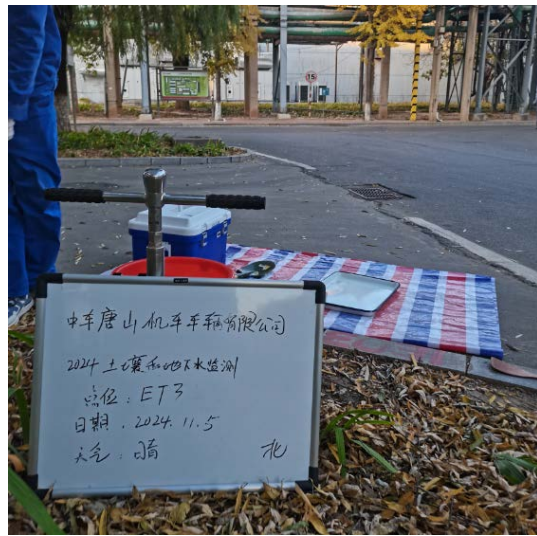 15
中车唐山机车车辆有限公司
2024土壤和地下水监测
点位：ET3
日期：2024.11.5
天气：晴
北